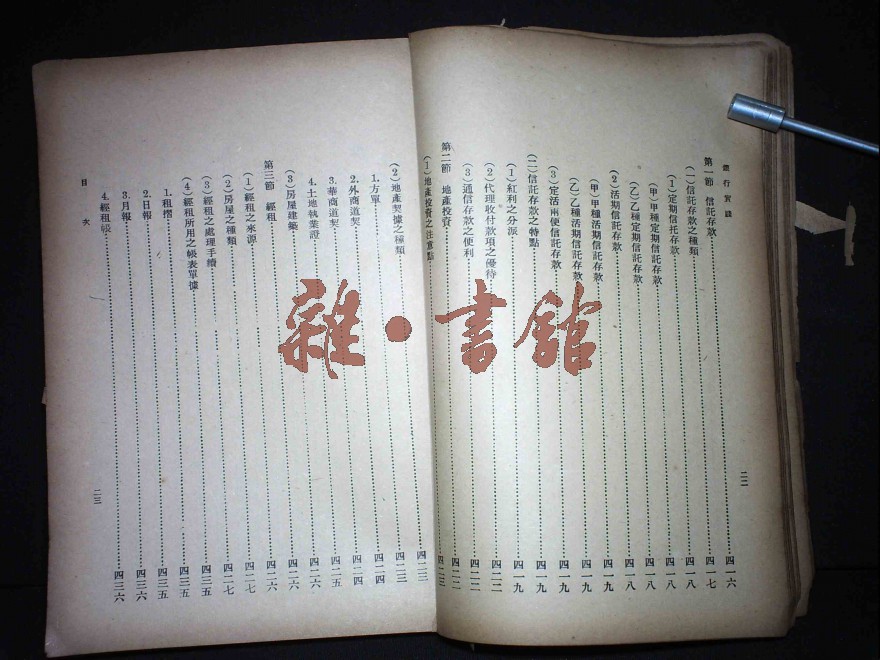 銀行實務
第一節 信託存款……四一六
(一)信託存款之種類……四一七
(1)定期信托存款……四一八
(甲)甲種定期信託存款……四一八
(乙)乙種定期信託存款……四一八
(2)活期信託存款……四一九
(甲)甲種活期信託存款……四一九
(乙)乙種活期信託存款……四一九
(3)定活兩便信託存款……四一九
(二)信託存款之特點……四一九
(1)紅利之分派……四一九
(2)代理收付款項之優待……四二二
(3)通信存款之便利……四二二
第二節 地產投資……四二二
(1)地產投資之注意點……四二三
二二
(2)地產契據之種類……四二三
1.方單……四二四
2.外商道契……四二四
3.華商道契……四二五
4.土地執業證……四二六
(3)房屋建築……四二六
第三節 經租……四二六
(1)經租之來源……四二七
(2)房屋之種類……四二七
(3)經租之處理手續……四三五
(4)經租所用之帳表單據……四三五
1.租摺……四三五
2.日報……四三六
3.月報……四三六
4.經租帳……四三六
目次
二三
雜·書館